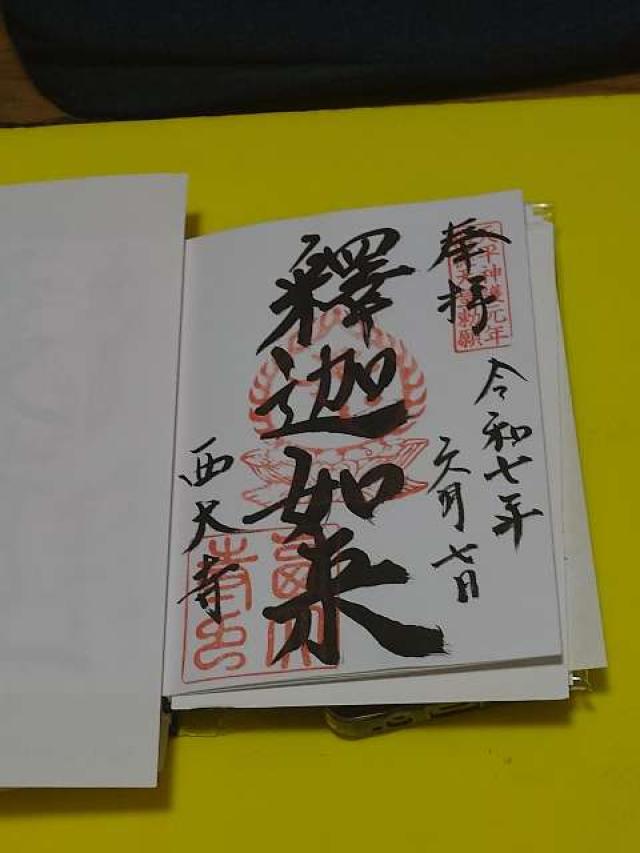 奉拝
天平神護元年
天皇勅願
令和七年
六月七日
釋迦如来
西大寺